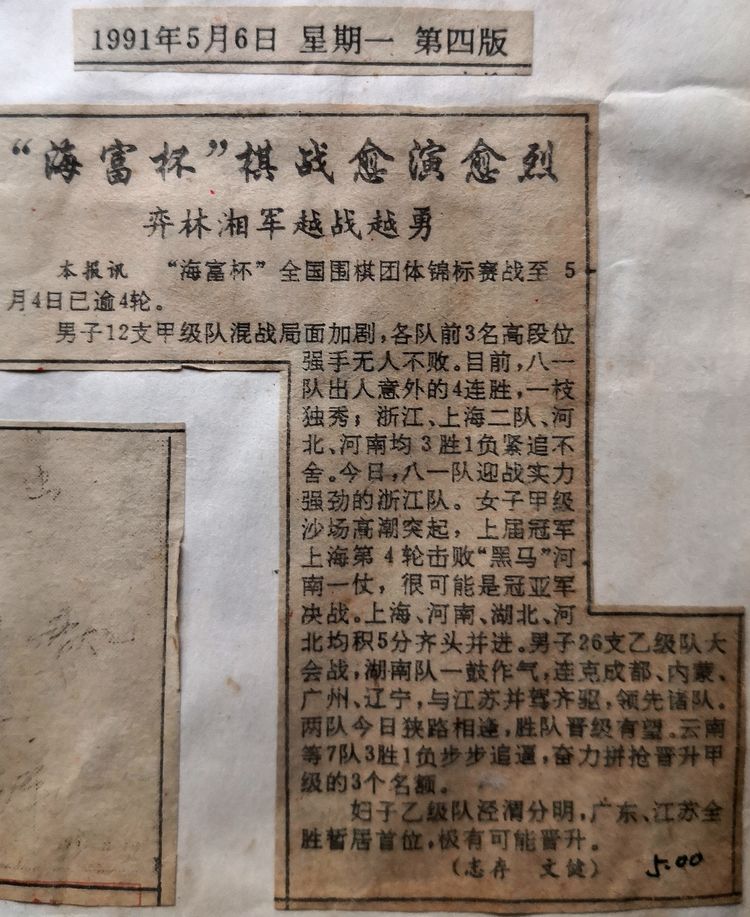 1991年5月6日 星期一 第四版
“海富杯”棋战愈演愈烈
弈林湘军越战越勇
本报讯 “海富杯”全国围棋团体锦标赛战至5
月4日已逾4轮。
男子12支甲级队混战局面加剧,各队前3名高段位
强手无人不败。目前,八一
队出人意外的4连胜,一枝
独秀;浙江、上海二队、河
北、河南均3胜1负紧追不
舍。今日,八一队迎战实力
强劲的浙江队。女子甲级
沙场高潮突起,上届冠军
上海第4轮击败“黑马”河
南一仗,很可能是冠亚军
决战。上海、河南、湖北、河
北均积5分齐头并进。男子26支乙级队大
会战,湖南队一鼓作气,连克成都、内蒙、
广州、辽宁,与江苏并驾齐驱,领先诸队。
两队今日狭路相逢,胜队晋级有望。云南
等7队3胜1负步步追逼,奋力拼抢晋升甲
级的3个名额。
妇子乙级队泾渭分明,广东、江苏全
胜暂居首位,极有可能晋升。
(志存 文健) 5.00